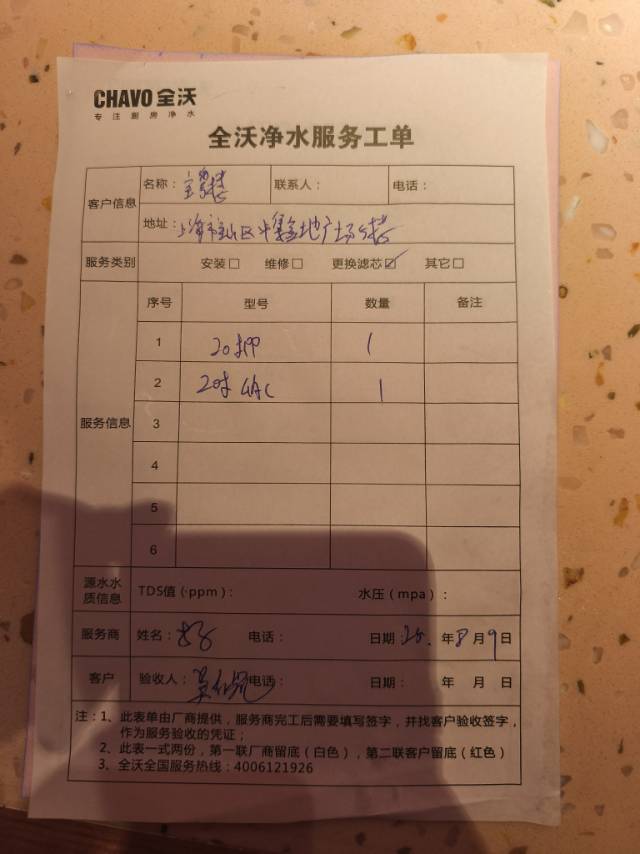 CHAVO 全沃
专注厨房净水
全沃净水服务工单
客户信息
名称：
联系人：
电话：
地址：上海市宝山区
广场
服务类别
安装□ 维修□ 更换滤芯☑ 其它□
服务信息
序号 型号 数量 备注
1 20寸PP 1
2 20寸 1
3
4
5
6
源水水质信息
TDS值（ppm）： 水压（mpa）：
服务商 姓名： 电话： 日期 25. 年 8 月 9 日
客户 验收人： 电话： 日期： 年 月 日
注：1、此表单由厂商提供，服务商完工后需要填写签字，并找客户验收签字，
作为服务验收的凭证；
2、此表一式两份，第一联厂商留底（白色），第二联客户留底（红色）
3、全沃全国服务热线：4006121926